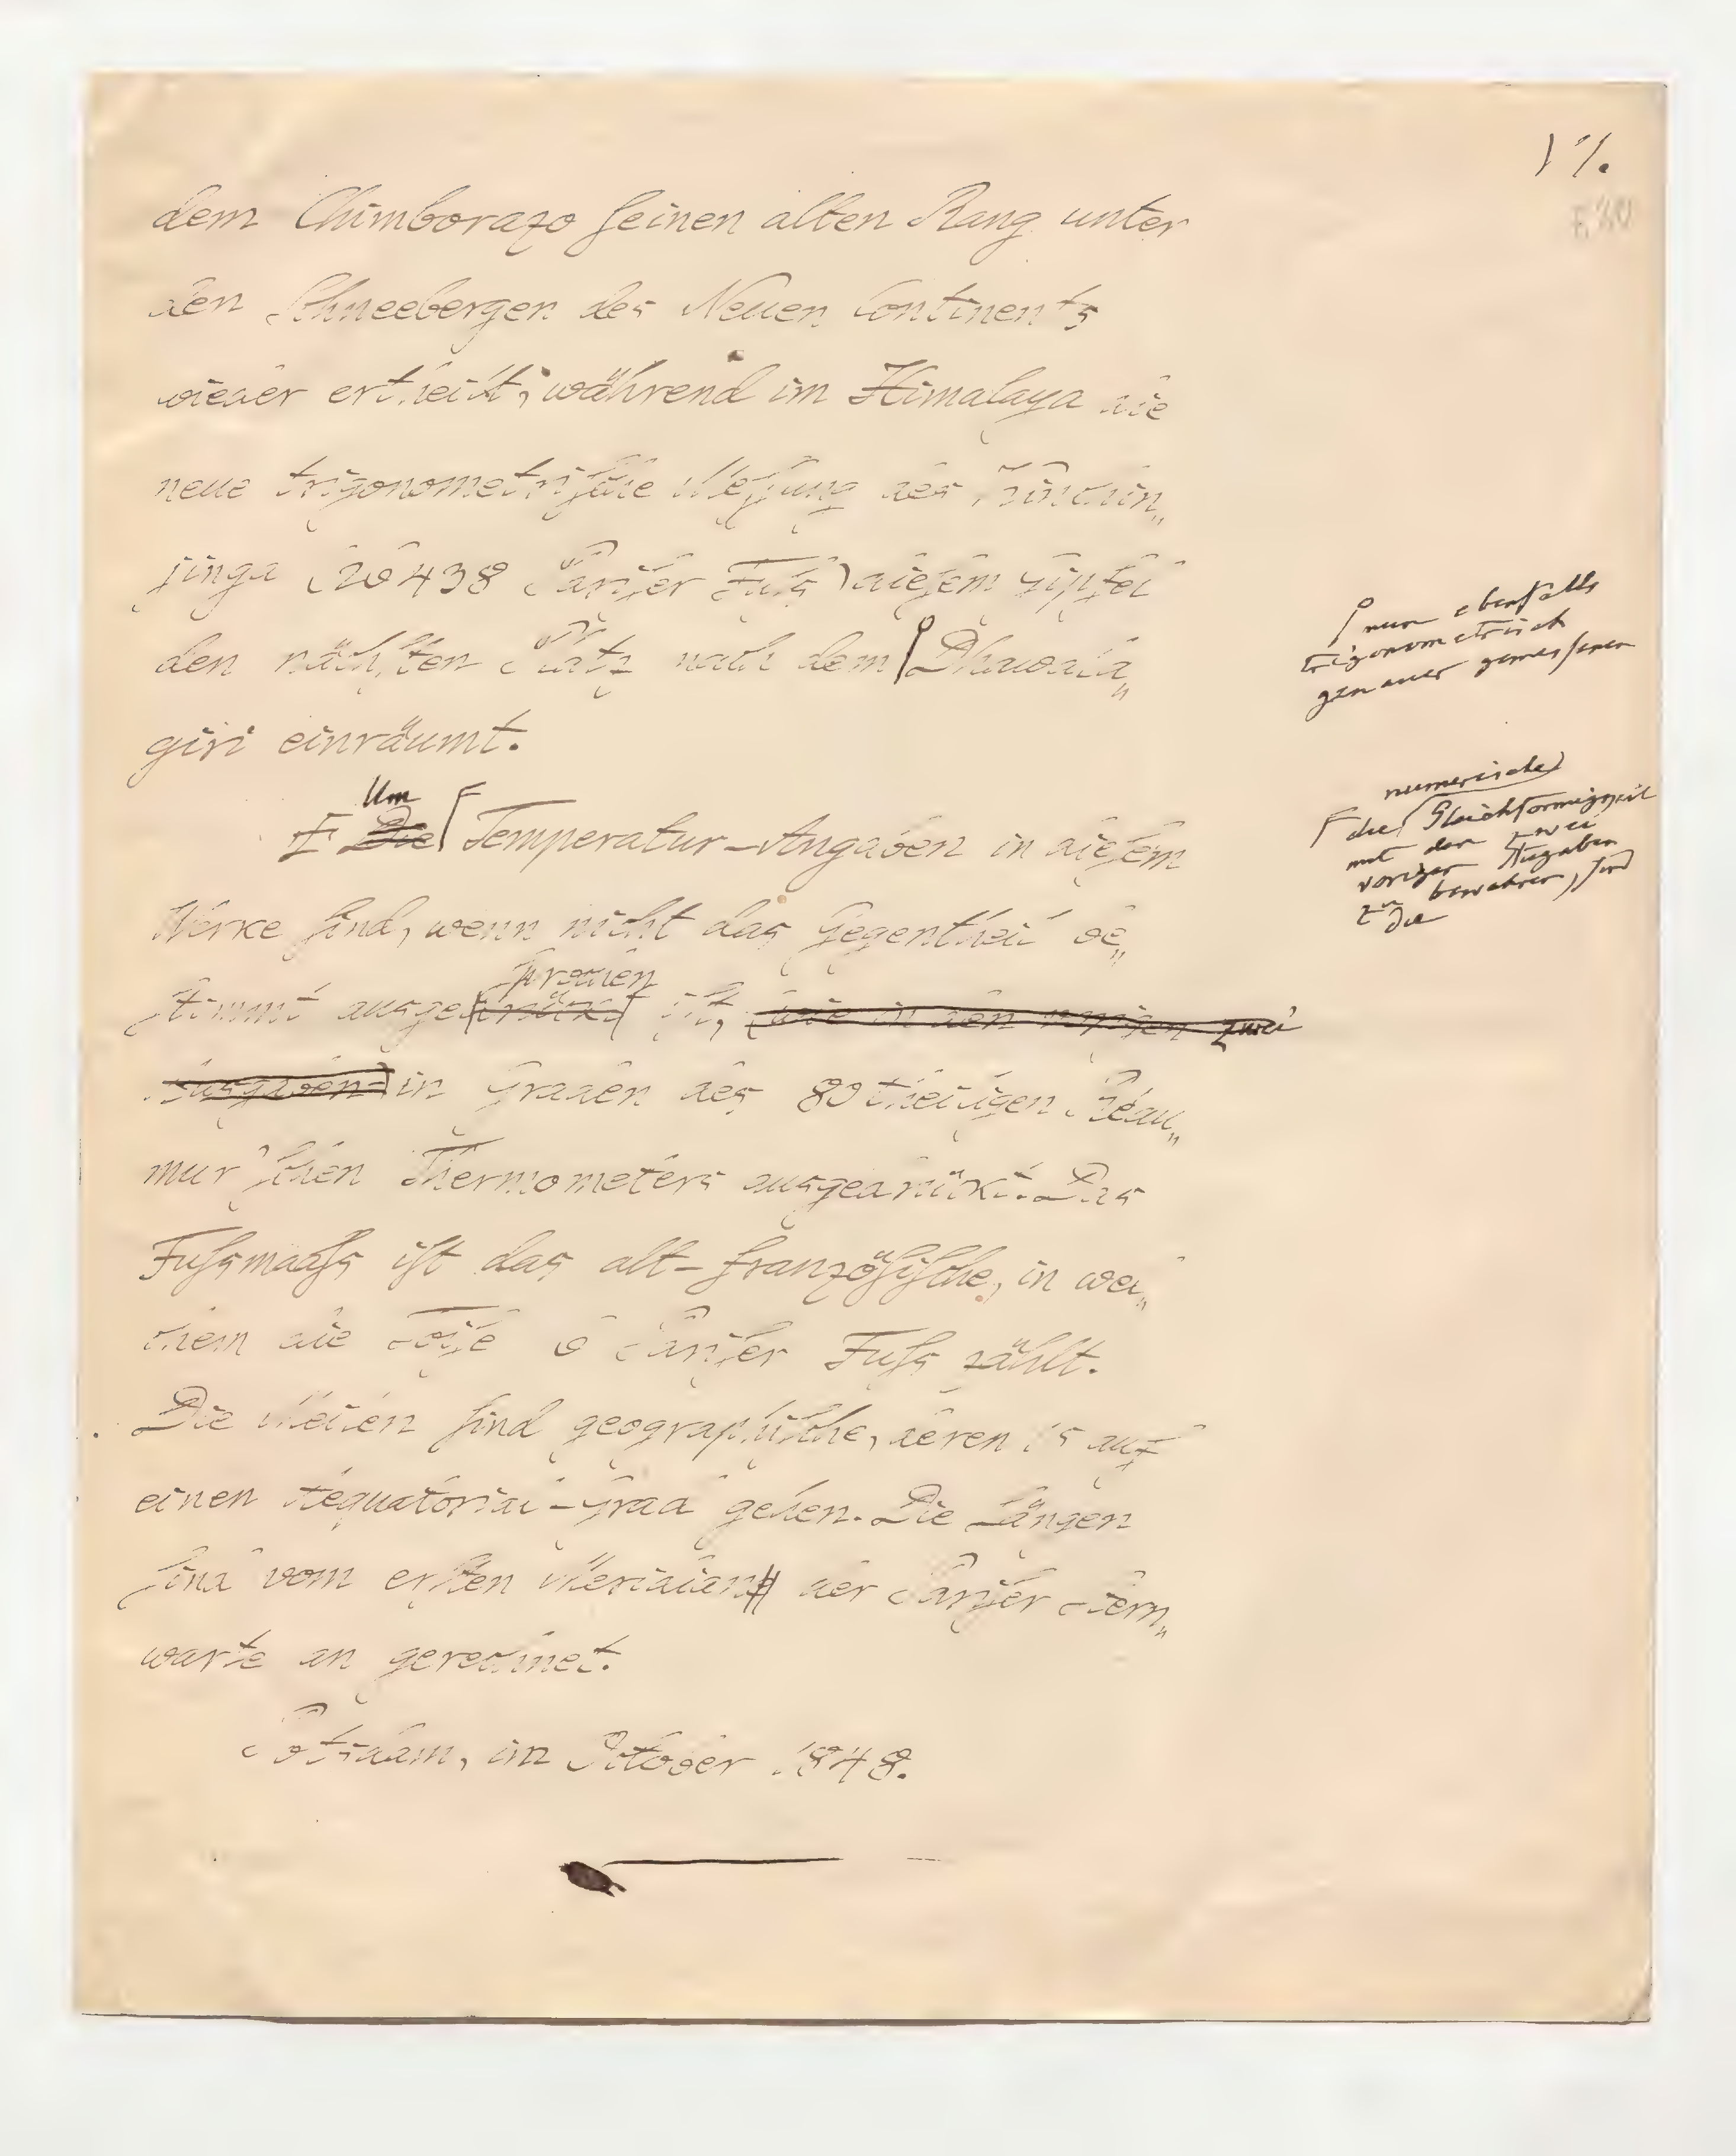 dem Chimborazo seinen alten Rang unter
den Schneebergen des Neuen Continents
wieder ertheilt; während im Himalaya die
neue trigonometrische Messung des Kinchin„
jinga (26438 Pariser Fuß) diesem Gipfel
den nächsten Platz nach dem Dhawala„
giri einräumt.
nun ebenfalls
trigonometrisch
genauer gemessenen
Um
Die Temperatur-Angaben in diesem
numerische
die Gleichförmigkeit
mit den zwei
voriger Ausgaben
zu bewahren, sind
die
Werke sind, wenn nicht das Gegentheil be„
sprochen
stimmt ausgedrückt ist, (wie in den vorigen zwei
Ausgaben) in Graden des 80theiligen Réau„
mur'schen Thermometers ausgedrückt. Das
Fußmaaß ist das alt-französische, in wel„
chem die Toise 6 Pariser Fuß zählt.
Die Meilen sind geographische, deren 15 auf
einen Aequatorial-Grad gehen. Die Längen
sind vom ersten Meridian der Pariser Stern„
warte an gerechnet.
Potsdam, im October 1848.